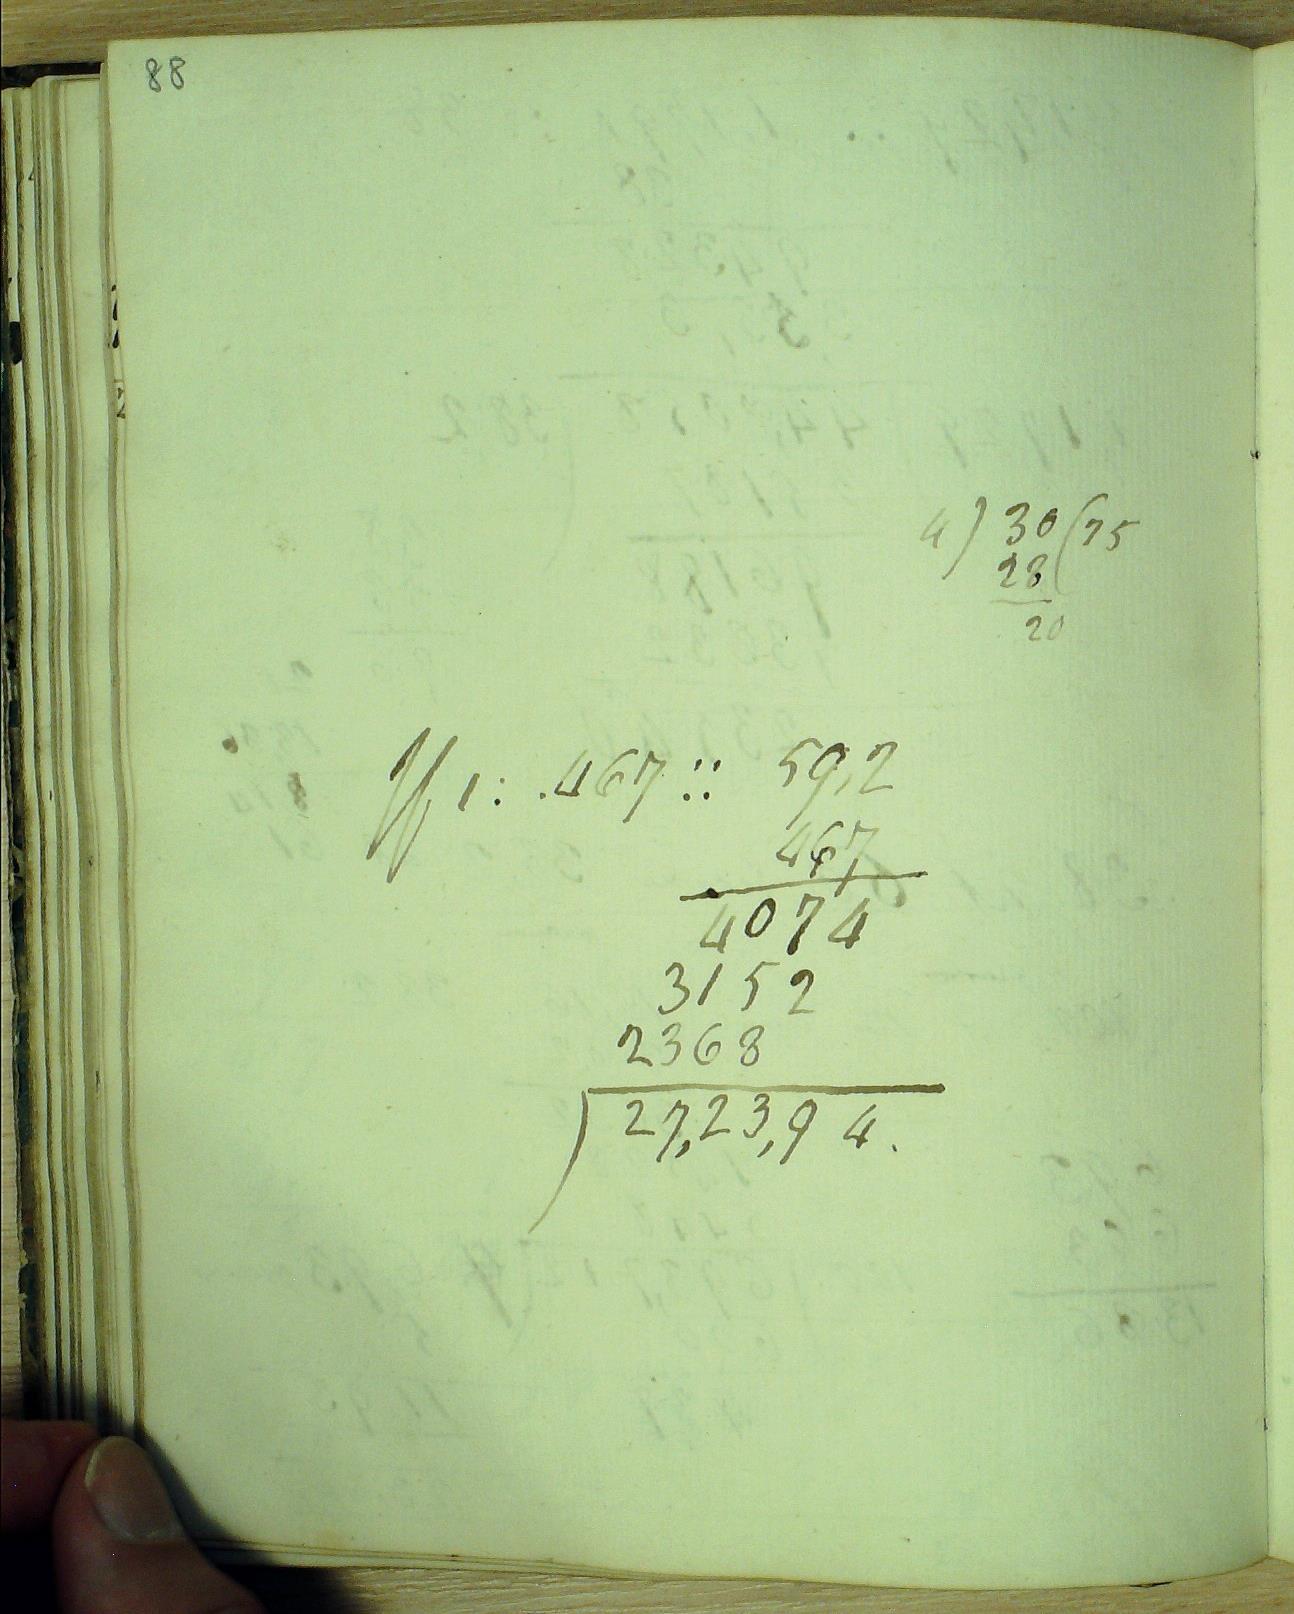 88
4 ) 30 ( 75
28
20
If 1 : .467 :: 59,2
467
4074
3152
2368
) 27,23,94.